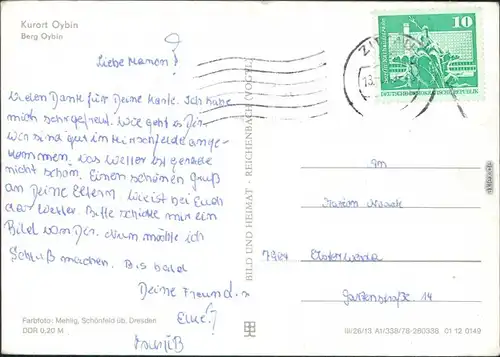 Kurort Oybin
Berg Oybin
Liebe Manon!
Vielen Dank für Deine Karte. Ich habe
mich sehr gefreut. Wie geht es Dir.
Wir sind gut in Hirschfelde ange-
kommen. Das Wetter ist gerade
nicht schön. Einen schönen Gruß
an Deine Eltern. Wie ist bei Euch
das Wetter. Bitte schicke mir ein
Bild von Dir. Nun möchte ich
Schluß machen. Bis bald
Deine Freund.
BILD UND HEIMAT · REICHENBACH (VOGTL)
10
DEUTSCHE DEMOKRATISCHE REPUBLIK
ZIT
13
7904 Elsterwerda
Gartenstraße 14
Farbfoto: Mehlig, Schönfeld üb. Dresden
DDR 0,20 M
III/26/13 A1/338/78-280338 01 12 0149